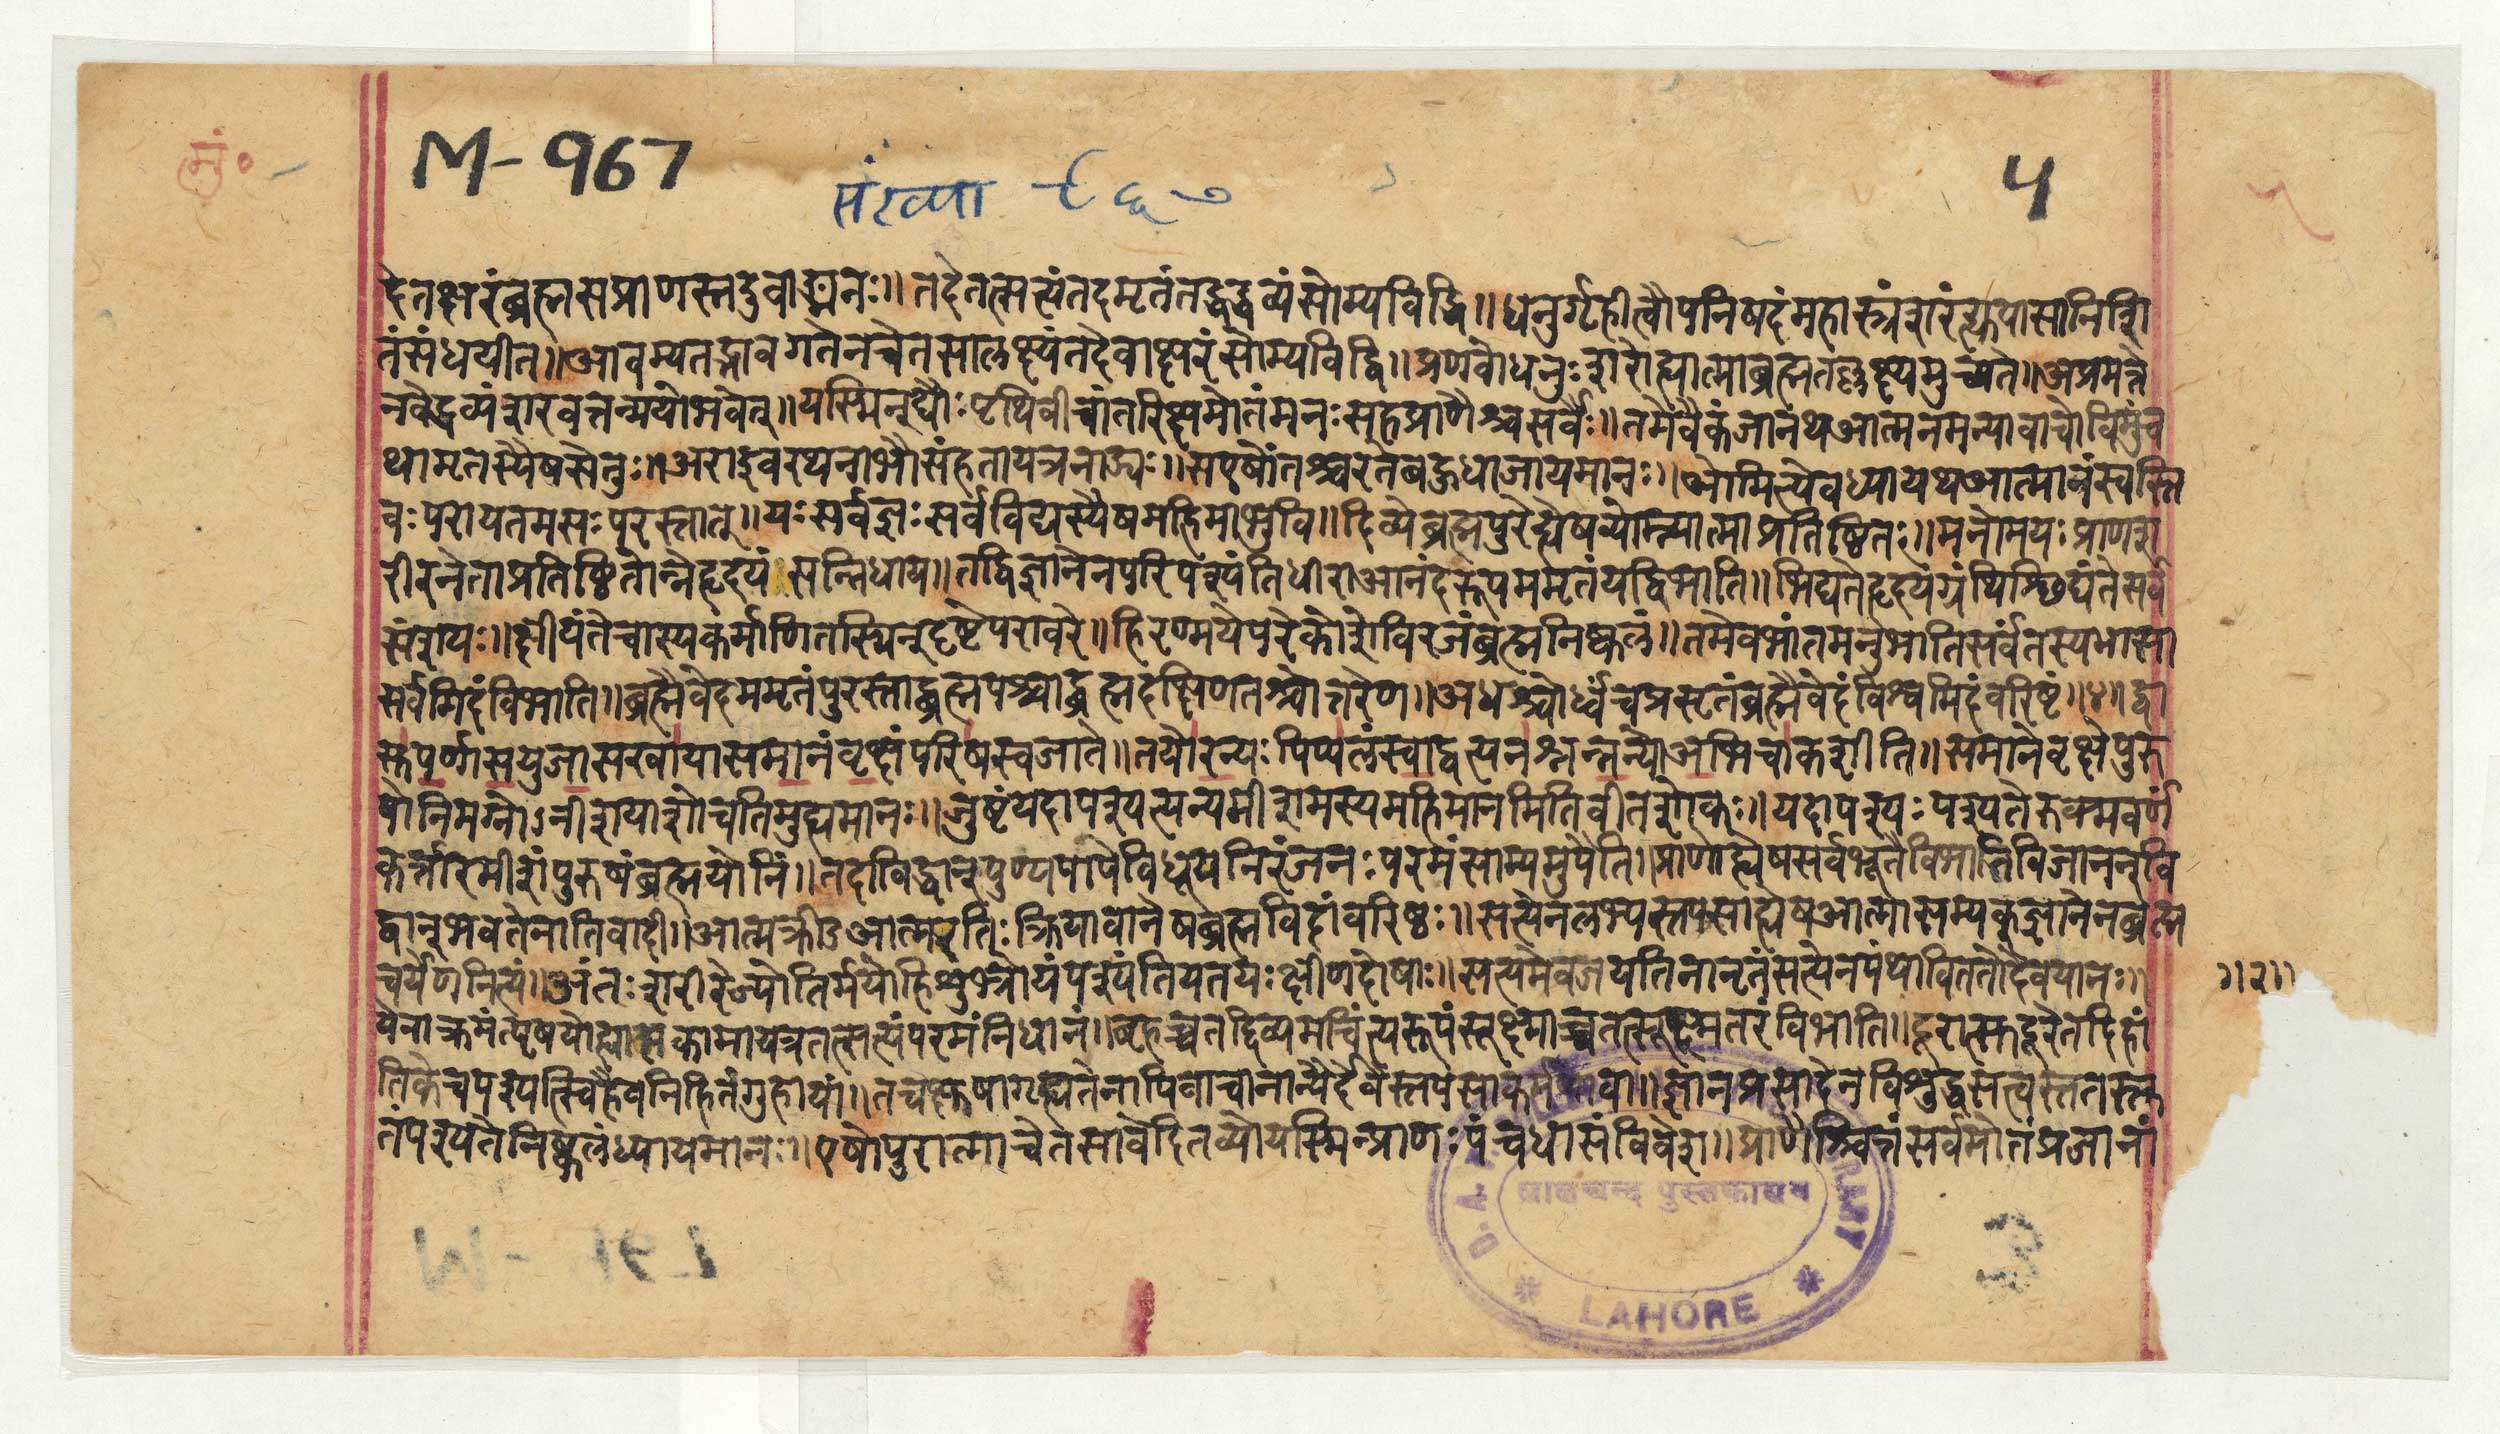 मुं॰
M-967
संख्या ९६७
4
देतक्षरंब्रह्मसप्राणस्तदुवाङ्मनः॥ तदेतत्सत्यंतदमृतंतद्वेद्धव्यंसोम्यविद्धि॥ धनुर्गृहीत्वौपनिषदंमहास्त्रंशरंह्युपासानिशि
तंसंधयीत॥आयम्यतद्भावगतेनचेतसालक्ष्यंतदेवाक्षरंसोम्यविद्धि॥ प्रणवोधनुःशरोह्यात्माब्रह्मतल्लक्ष्यमुच्यते॥अप्रमत्ते
नवेद्धव्यंशरवत्तन्मयोभवेत्॥यस्मिन्द्यौःपृथिवीचांतरिक्षमोतंमनःसहप्राणैश्चसर्वैः॥तमेवैकंजानथआत्मनमन्यावाचोविमुंच
थामृतस्यैषसेतुः॥अराइवरथनाभौसंहतायत्रनाड्यः॥सएषोंतश्चरतेबहुधाजायमानः॥ओमित्येवध्यायथआत्मानंस्वस्ति
वःपरायतमसःपरस्तात्॥यःसर्वज्ञःसर्वविद्यस्यैषमहिमाभुवि॥दिव्येब्रह्मपुरेह्येषव्योम्न्यात्माप्रतिष्ठितः॥मनोमयःप्राणश
रीरनेताप्रतिष्ठितोन्नेहृदयं सन्निधाय॥तद्विज्ञानेनपरिपश्यंतिधीराआनंदरूपममृतंयद्विभाति॥भिद्यतेहृदयग्रंथिश्छिद्यंतेसर्व
संशयाः॥क्षीयंतेचास्यकर्माणितस्मिन्दृष्टेपरावरे॥हिरण्मयेपरेकोशेविरजंब्रह्मनिष्कलं॥तमेवभांतमनुभातिसर्वंतस्यभासा
सर्वमिदंविभाति॥ब्रह्मैवेदममृतंपुरस्ताद्ब्रह्मपश्चाद्ब्रह्मदक्षिणतश्चोत्तरेण॥अधश्चोर्ध्वंचप्रसृतंब्रह्मैवेदंविश्वमिदंवरिष्टं॥४॥द्वा
सुपर्णासयुजासखायासमानंवृक्षंपरिषस्वजाते॥तयोरन्यःपिप्पलंस्वाद्वत्यनश्नन्नन्योअभिचाकशीति॥समानेवृक्षेपुरु
षोनिमग्नोऽनीशयाशोचतिमुह्यमानः॥जुष्टंयदापश्यत्यन्यमीशमस्यमहिमानमितिवीतशोकः॥यदापश्यःपश्यतेरुक्मवर्णं
कर्त्तारमीशंपुरुषंब्रह्मयोनिं॥तदाविद्वान्पुण्यपापेविधूयनिरंजनःपरमंसाम्यमुपैति॥प्राणोह्येषसर्वभूतैर्विभातिविजानन्वि
द्वान्भवतेनातिवादी॥आत्मक्रीडआत्मरतिःक्रियावानेषब्रह्मविदांवरिष्ठः॥सत्येनलभ्यस्तपसाह्येषआत्मासम्यक्ज्ञानेनब्रह्म
चर्येणनित्यं॥अंतःशरीरेज्योतिर्मयोहिशुभ्रोयंपश्यंतियतयःक्षीणदोषाः॥सत्यमेवजयतिनानृतंसत्येनपंथाविततोदेवयानः॥
येनाक्रमंत्यृषयोह्याप्तकामायत्रतत्सत्यंपरमंनिधानं॥बृहच्चतद्दिव्यमचिंत्यरूपंसूक्ष्माच्चतत्सूक्ष्मतरंविभाति॥दूरात्सुदूरेतदिहां
तिकेचपश्यत्स्विहैवनिहितंगुहायां॥नचक्षुषागृह्यतेनापिवाचानान्यैर्देवैस्तपसाकर्मणावा॥ज्ञानप्रसादेनविशुद्धसत्त्वस्ततस्तु
तंपश्यतेनिष्कलंध्यायमानः॥एषोणुरात्माचेतसावेदितव्योयस्मिन्प्राणःपंचधासंविवेश॥प्राणैश्चित्तंसर्वमोतंप्रजानां
लालचन्द पुस्तकालय
LAHORE